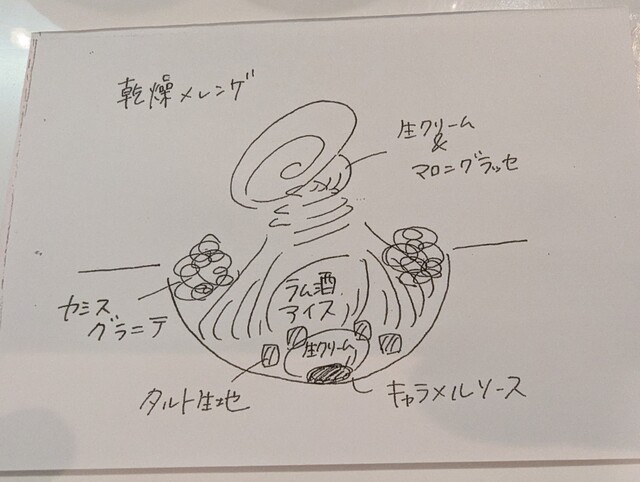 乾燥メレンゲ
生クリーム
&
マロングラッセ
カシス
グラニテ
ラム酒
アイス
生クリーム
タルト生地
キャラメルソース